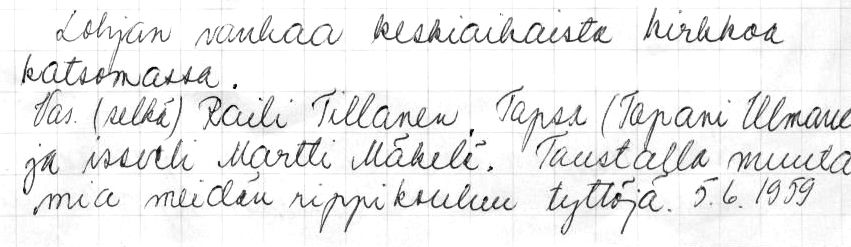 Lohjan vanhaa keskiaikaista kirkkoa
katsomassa.
Vas. (selkä) Raili Tillanen, Tapsa (Tapani Ulmane
ja isoveli Martti Mäkelä. Taustalla muuta
mia meidän rippikoulun tyttöjä. 5.6. 1959